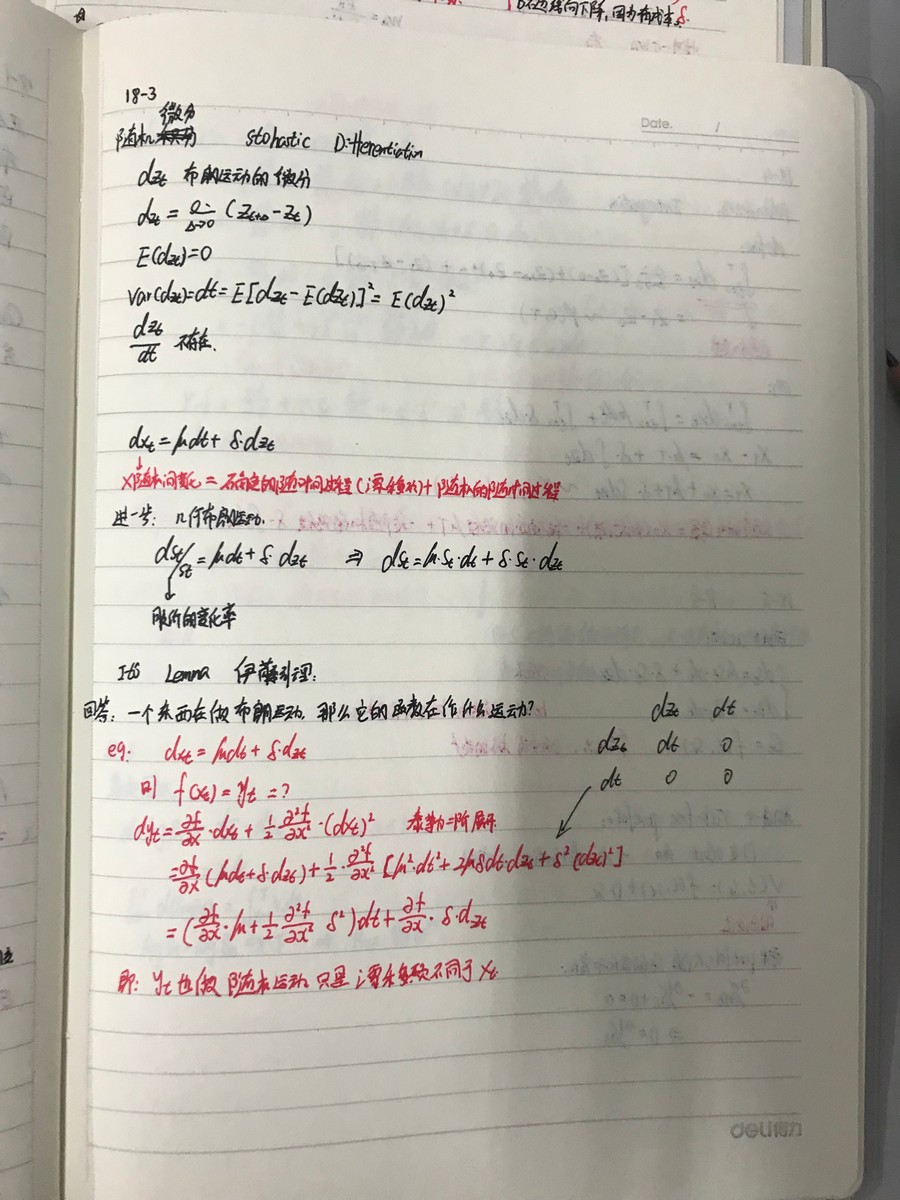 b在边缘向下降,因为有成本δ.
18-3
Date. /
微分
随机 stohastic Differentiation
dzt 布朗运动的微分
dzt = (Zt+Δ - Zt)
E(dzt)=0
Var(dzt)=dt=E[dzt-E(dzt)]²= E(dzt)²
dzt/dt 不存在.
dxt = μdt + δ·dzt
X随机间变化 = 确定的随时间过程(漂移项)+ 随机的随时间过程
进一步: 几何布朗运动.
dSt/St = μdt + δ·dzt ⇒ dSt = μ·St·dt + δ·St·dzt
股价的变化率
Itô Lemma 伊藤引理:
回答: 一个东西在做布朗运动, 那么它的函数在作什么运动?
dzt dt
eg: dxt = μdt + δ·dzt
dzt dt 0
则 f(xt) = yt = ?
dt 0 0
dyt = ∂f/∂x · dxt + 1/2 ∂²f/∂x² · (dxt)² 泰勒二阶展开
= ∂f/∂x (μdt + δ·dzt) + 1/2 · ∂²f/∂x² [μ²·dt² + 2μδdt·dzt + δ²(dzt)²]
= (∂f/∂x · μ + 1/2 ∂²f/∂x² δ²)dt + ∂f/∂x · δ·dzt
即: yt 也做随机运动, 只是漂移项不同于 Xt
deli得力